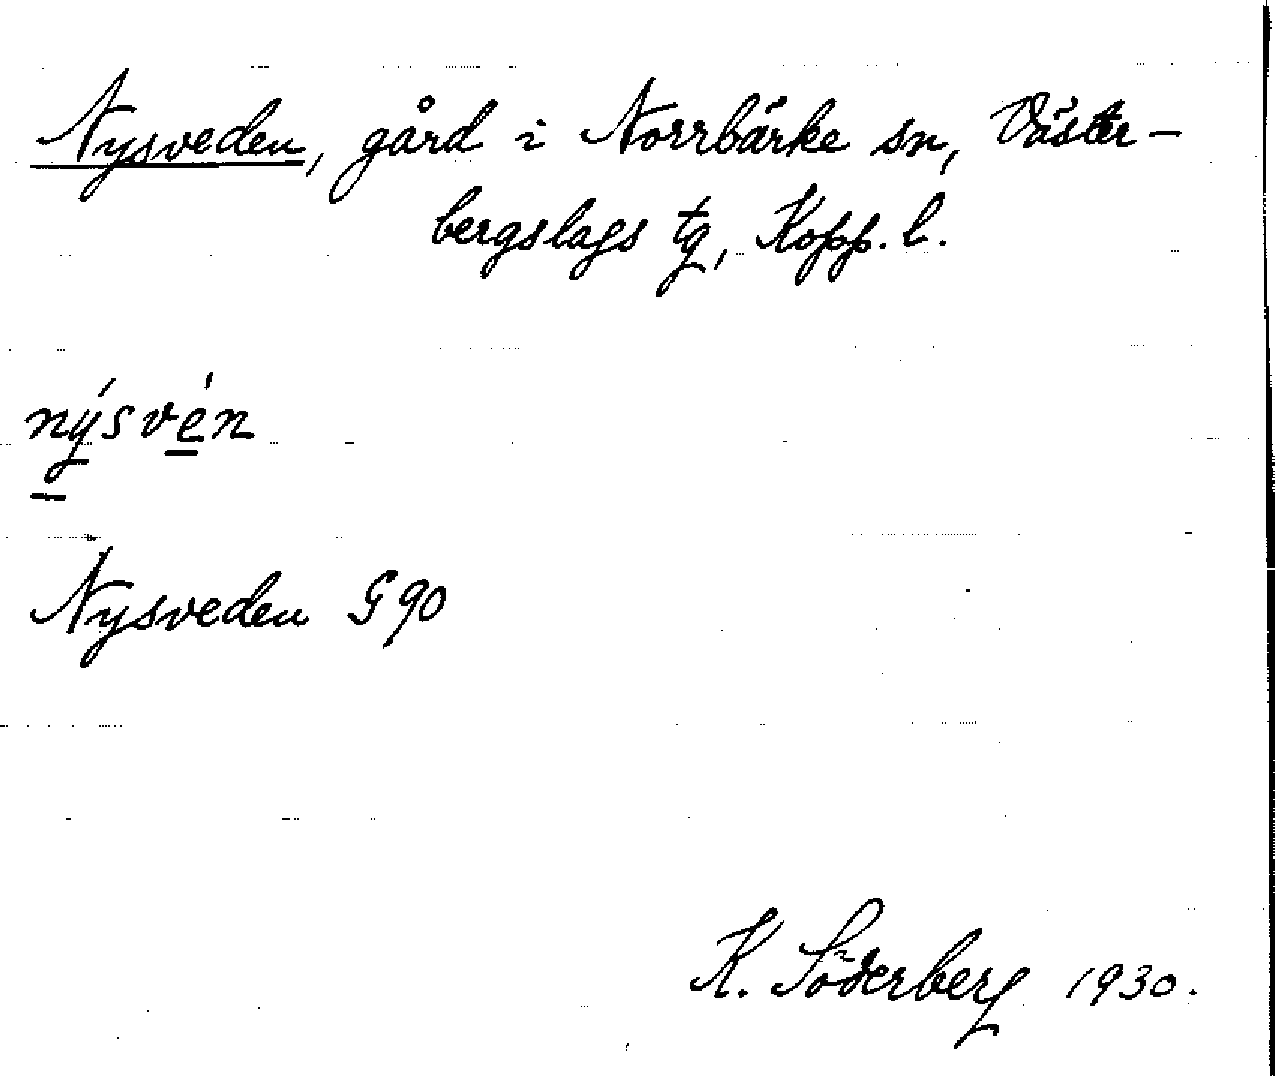 Nysveden, gård i Norrbärke sn, Väster-
bergslags tg, Kopp. l.
nýsvén
Nysveden G 90
K. Söderberg 1930.